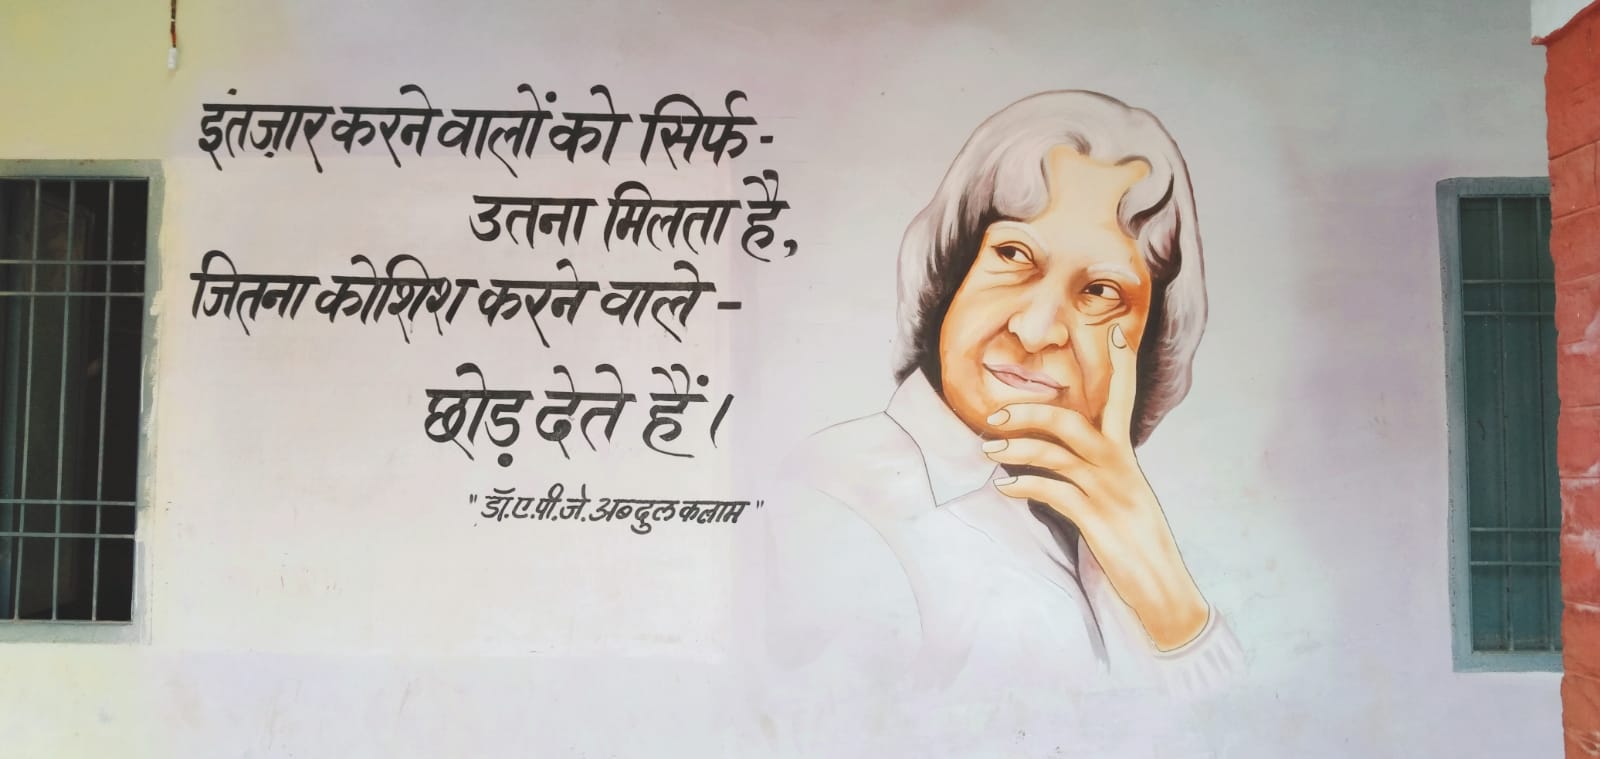 इंतज़ार करने वालों को सिर्फ -
उतना मिलता है,
जितना कोशिश करने वाले -
छोड़ देते हैं।
"डॉ. ए. पी. जे. अब्दुल कलाम"